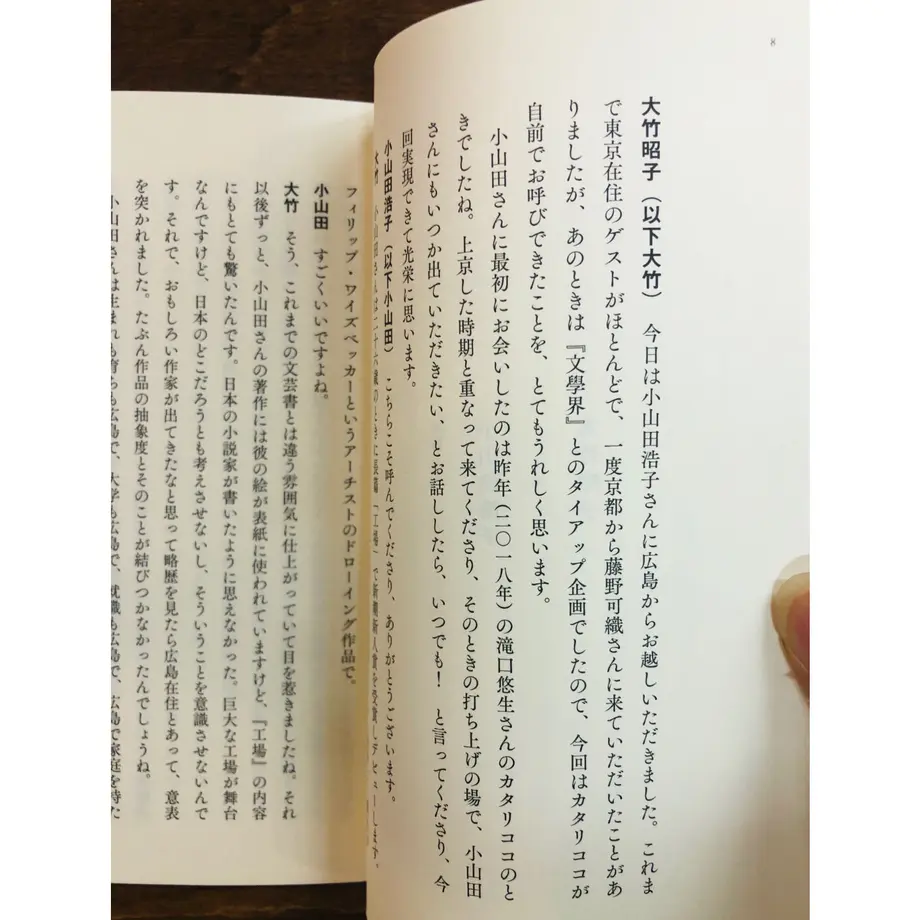 8
大竹昭子(以下大竹) 今日は小山田浩子さんに広島からお越しいただきました。これま
で東京在住のゲストがほとんどで、一度京都から藤野可織さんに来ていただいたことがあ
りましたが、あのときは『文學界』とのタイアップ企画でしたので、今回はカタリココが
自前でお呼びできたことを、とてもうれしく思います。
小山田さんに最初にお会いしたのは昨年(二〇一八年)の滝口悠生さんのカタリココのと
きでしたね。上京した時期と重なって来てくださり、そのときの打ち上げの場で、小山田
さんにもいつか出ていただきたい、とお話ししたら、いつでも! と言ってくださり、今
回実現できて光栄に思います。
小山田浩子(以下小山田) こちらこそ呼んでくださり、ありがとうございます。
大竹 小山田さんは二十六歳のときに長篇「工場」で新潮新人賞を受賞しデビューします。
フィリップ・ワイズベッカーというアーチストのドローイング作品で。
小山田 すごくいいですよね。
大竹 そう、これまでの文芸書とは違う雰囲気に仕上がっていて目を惹きましたね。それ
以後ずっと、小山田さんの著作には彼の絵が表紙に使われていますけど、『工場』の内容
にもとても驚いたんです。日本の小説家が書いたように思えなかった。巨大な工場が舞台
なんですけど、日本のどこだろうとも考えさせないし、そういうことを意識させないんで
す。それで、おもしろい作家が出てきたなと思って略歴を見たら広島在住とあって、意表
を突かれました。たぶん作品の抽象度とそのことが結びつかなかったんでしょうね。
小山田さんは生まれも育ちも広島で、大学も広島で、就職も広島で、広島で家庭を持た